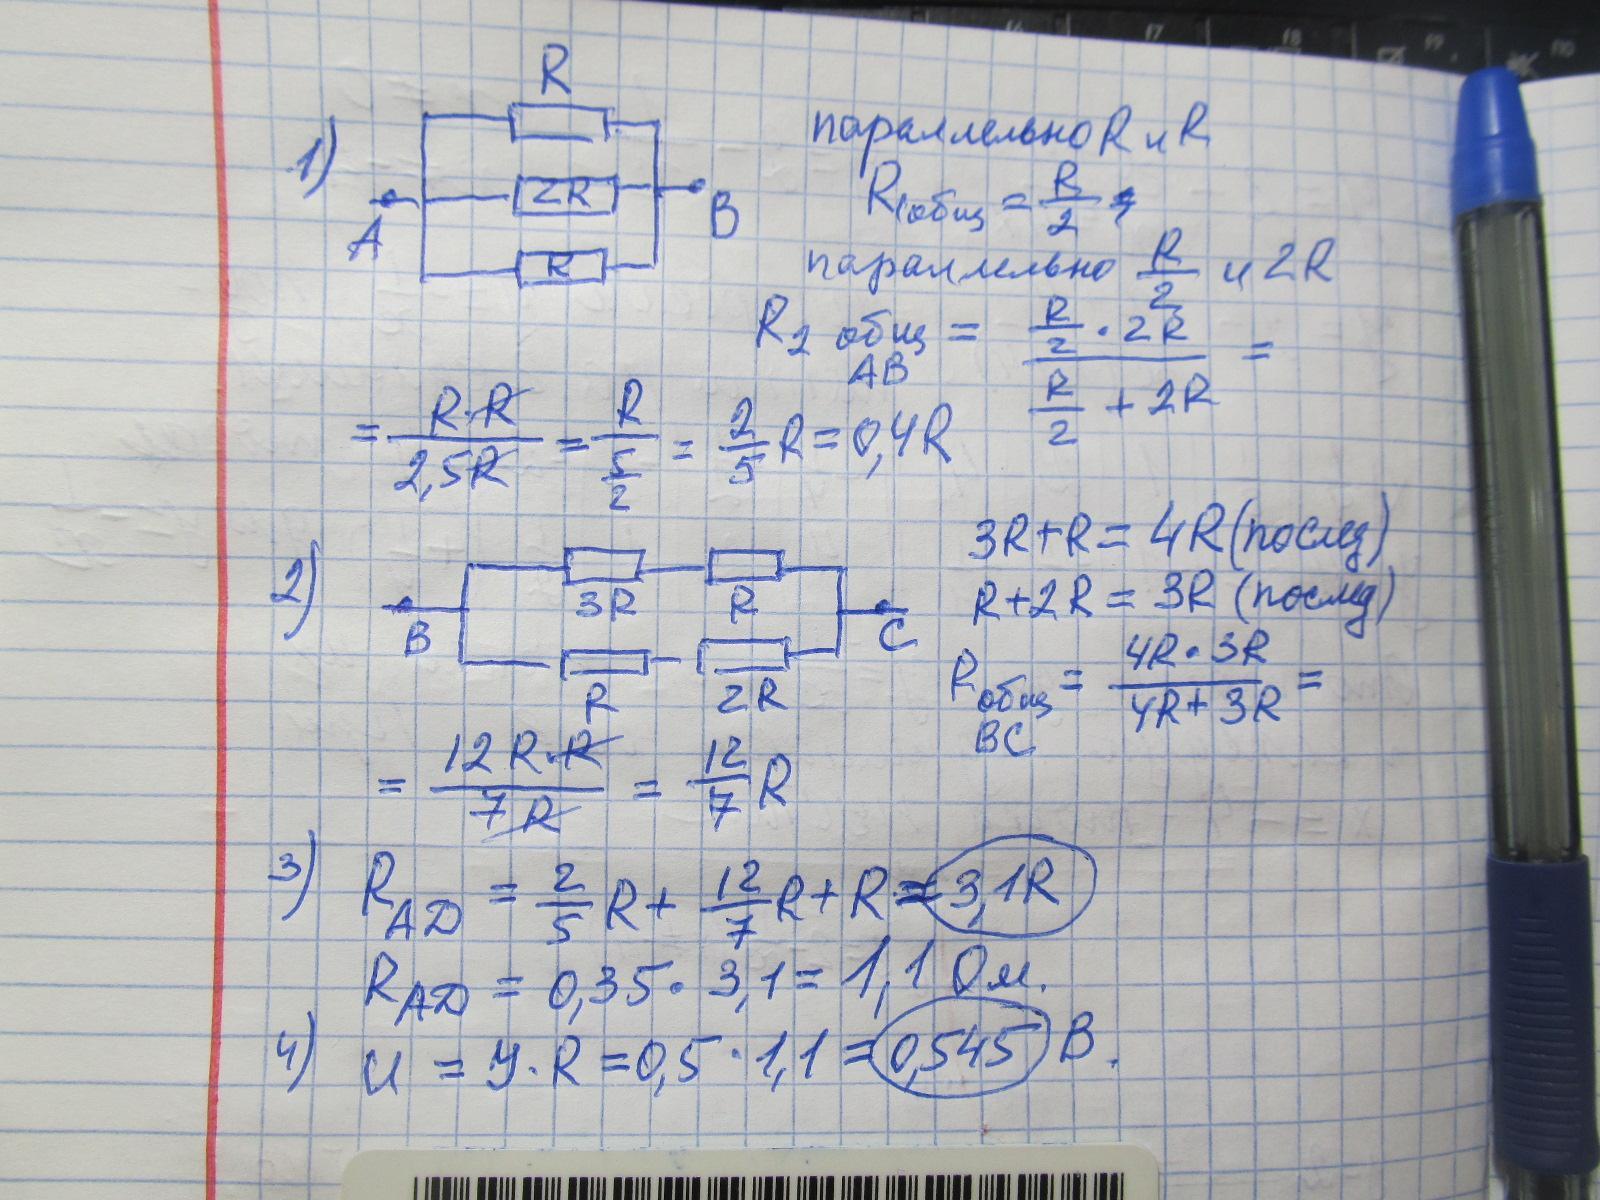 1)
R
2R
R
A
B
параллельно R и R
R₁общ = R/2
параллельно R/2 и 2R
R₂ общ AB = (R/2 · 2R)/(R/2 + 2R) =
= (R·R)/(2,5R) = R/(5/2) = 2/5 R = 0,4R
2)
B
3R
R
R
2R
C
3R+R = 4R (послед)
R+2R = 3R (послед)
Rобщ BC = (4R·3R)/(4R+3R) =
= (12R·R)/(7R) = 12/7 R
3) R_AD = 2/5 R + 12/7 R + R = 3,1R
R_AD = 0,35 · 3,1 = 1,1 Ом.
4) U = У·R = 0,5 · 1,1 = 0,545 В.
f7
f8
f9